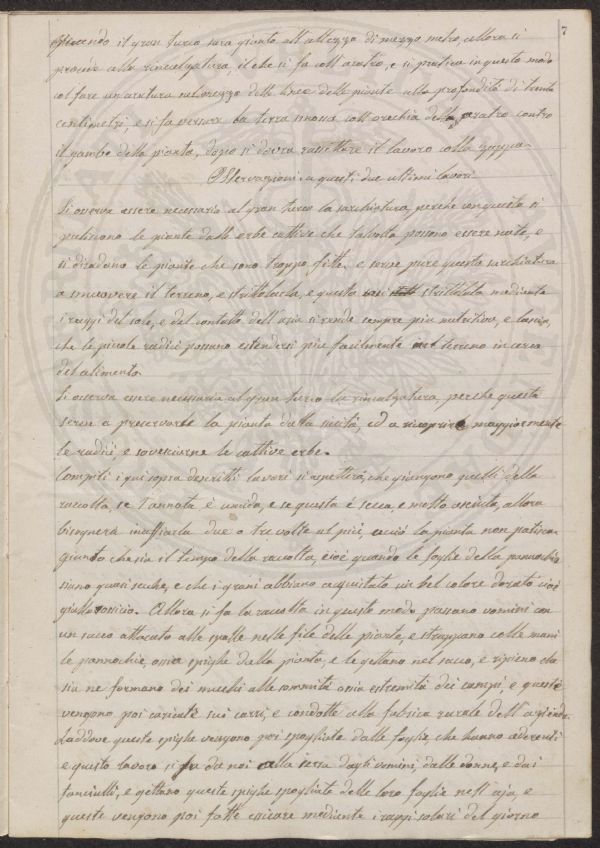 7
Quando il gran turco sara gionto all'altezza di mezzo metro, allora si
procede alla rincalzatura, il che si fa coll'aratro, e si pratica in questo modo
col fare un'aratura nel mezzo delle linee delle piante alla profondità di trenta
centimetri, e si fa versare la terra smossa coll'orechia dell'aratro contro
il gambo della pianta, dopo si dovrà rassettare il lavoro colla zappa.
Osservazioni a questi due ultimi lavori
Si osserva essere necessario al gran turco la sarchiatura, perchè con questa si
puliscono le piante dalle erbe cattive che talvolta possono essere nate, e
si diradano le piante che sono troppo fitte, e serve pure questa sarchiatura
a smuovere il terreno, e stritolarlo, e questo stritolato mediante
i raggi del sole, e del contatto dell'aria si rende sempre piu nutritivo, e lascia,
che le picole radici possano estendersi più facilmente nel terreno in cerca
del alimento.
Si osserva essere necessaria al gran turco la rincalzatura, perche questa
serve a preservarle la pianta dalla siccità, ed a ricoprire maggiormente
le radici, e sovesciarne le cattive erbe.
Compiti i qui sopra descritti lavori si aspetterà, che giungono quelli della
raccolta, se l'annata è umida, e se questa è secca, e molto asciuta, allora
bisognerà inaffiarla due o tre volte al più, acciò la pianta non patisca.
giunto che sia il tempo della raccolta, cioè quando le foglie della pannochia
siano quasi secche, e che i grani abbiano acquistato un bel colore dorato cioè
giallo rossicio. Allora si fa la raccolta in questo modo passano uomini con
un sacco attacato alle spalle nelle file delle piante, e strappano colle mani
le pannochie, ossia spighe dalla pianta, e le gettano nel sacco, e ripieno che
sia ne formano dei mucchi alle sommità ossia estremità dei campi, e queste
vengono poi caricate sui carri, e condotte alla fabrica rurale dell'azienda
Laddove queste spighe vengono poi spogliate dalle foglie, che hanno aderenti
e questo lavoro si fa da noi alla sera dagli uomini, dalle donne, e dai
fanciulli, e gettano queste spighe spogliate delle loro foglie nell'aja e
queste vengono poi fatte essicare mediante i raggi solari del giorno